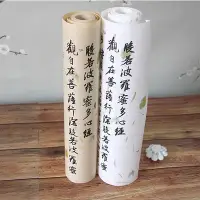 般若波羅蜜多心經
觀自在菩薩行深般若波羅蜜
般若波羅蜜多心經
觀自在菩薩行深般若波羅蜜